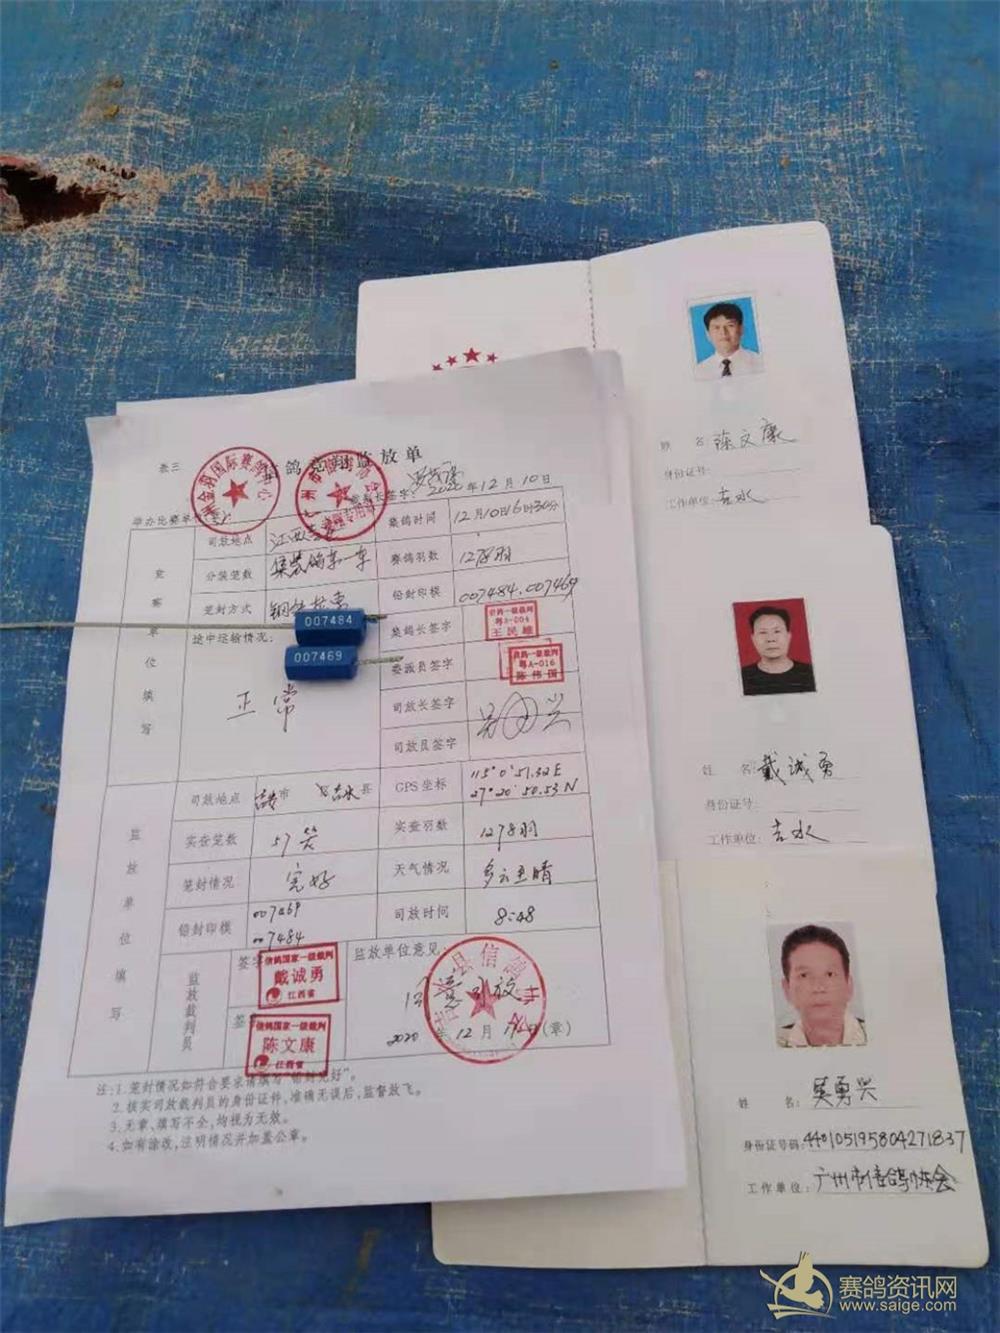 表三
鸽竞翔监放单
2020年12月10日
举办比赛单位
竞赛单位填写
司放地点 江西吉水 集鸽时间 12月10日16时30分
分装笼数 集装鸽车一车 赛鸽羽数 1278羽
笼封方式 铅封印模 007484.007469
007484
007469
途中运输情况: 正常
集鸽长签字 信鸽一级裁判 粤A-004 王民雄
委派员签字 信鸽一级裁判 粤A-016 陈伟国
司放长签字
司放员签字
监放单位填写
司放地点 吉安市 吉水县 GPS坐标 115°0′51.32E 27°20′50.53N
实查笼数 57笼 实查羽数 1278羽
笼封情况 完好 天气情况 多云至晴
铅封印模 007469 007484 司放时间 8:48
监放裁判员
签字 信鸽国家一级裁判 戴诚勇 江西省
签字 信鸽国家一级裁判 陈文康 江西省
监放单位意见:
同意司放
2020年12月 日(章)
县信鸽
金羽国际赛鸽中心
注:1.笼封情况如符合要求请填写“铅封完好”。
2.核实司放裁判员的身份证件,准确无误后,监督放飞。
3.无章、填写不全,均视为无效。
4.如有涂改,注明情况并加盖公章。
姓 名: 陈文康
身份证号:
工作单位: 吉水
姓 名: 戴诚勇
身份证号:
工作单位: 吉水
姓 名: 吴勇兴
身份证号码: 440105195804271837
工作单位: 广州市信鸽协会
赛鸽资讯网
www.saige.com